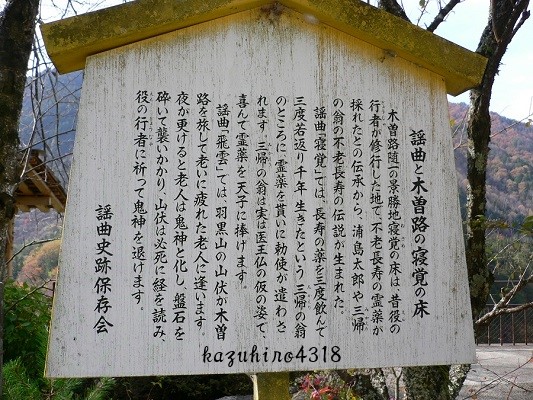 謡曲と木曽路の寝覚の床
木曽路随一の景勝地寝覚の床は、昔役の
行者が修行した地で、不老長寿の霊薬が
採れたとの伝承から、浦島太郎や三帰
の翁の不老長寿の伝説が生まれた。
謡曲「寝覚」では、長寿の薬を三度飲んで
三度若返り千年生きたという三帰の翁
のところに、霊薬を貰いに勅使が遣わさ
れます。三帰の翁は実は医王仏の仮の姿で、
喜んで霊薬を天子に捧げます。
謡曲「飛雲」では、羽黒山の山伏が木曽
路を旅して老いに疲れた老人に逢います。
夜が更けると老人は鬼神と化し、盤石を
砕いて襲いかかり、山伏は必死に経を読み、
役の行者に祈って鬼神を退けます。
謡曲史跡保存会
kazuhiro4318